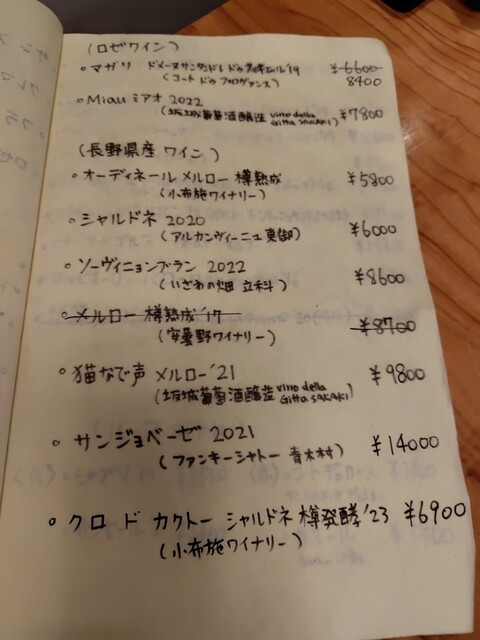 (ロゼワイン)
。マガリ ドメーヌサンタンドレドゥ '19 ¥6600
(コート ドゥ プロヴァンス) 8400
。Miau ミアオ 2022 ¥7800
(坂城葡萄酒醸造 vino della Gitta SAKAKI)
(長野県産 ワイン)
。オーディネール メルロー 樽熟成 ¥5800
(小布施ワイナリー)
。シャルドネ 2020 ¥6000
(アルカンヴィーニュ 東御)
。ソーヴィニョンブラン 2022 ¥8600
(いざわの畑 立科)
。メルロー 樽熟成 '17 ¥8700
(安曇野ワイナリー)
。猫なで声 メルロー '21 ¥9800
(坂城葡萄酒醸造 vino della Gitta SAKAKI)
。サンジョベーゼ 2021 ¥14000
(ファンキーシャトー 青木村)
。クロ ド カクトー シャルドネ 樽発酵 '23 ¥6900
(小布施ワイナリー)